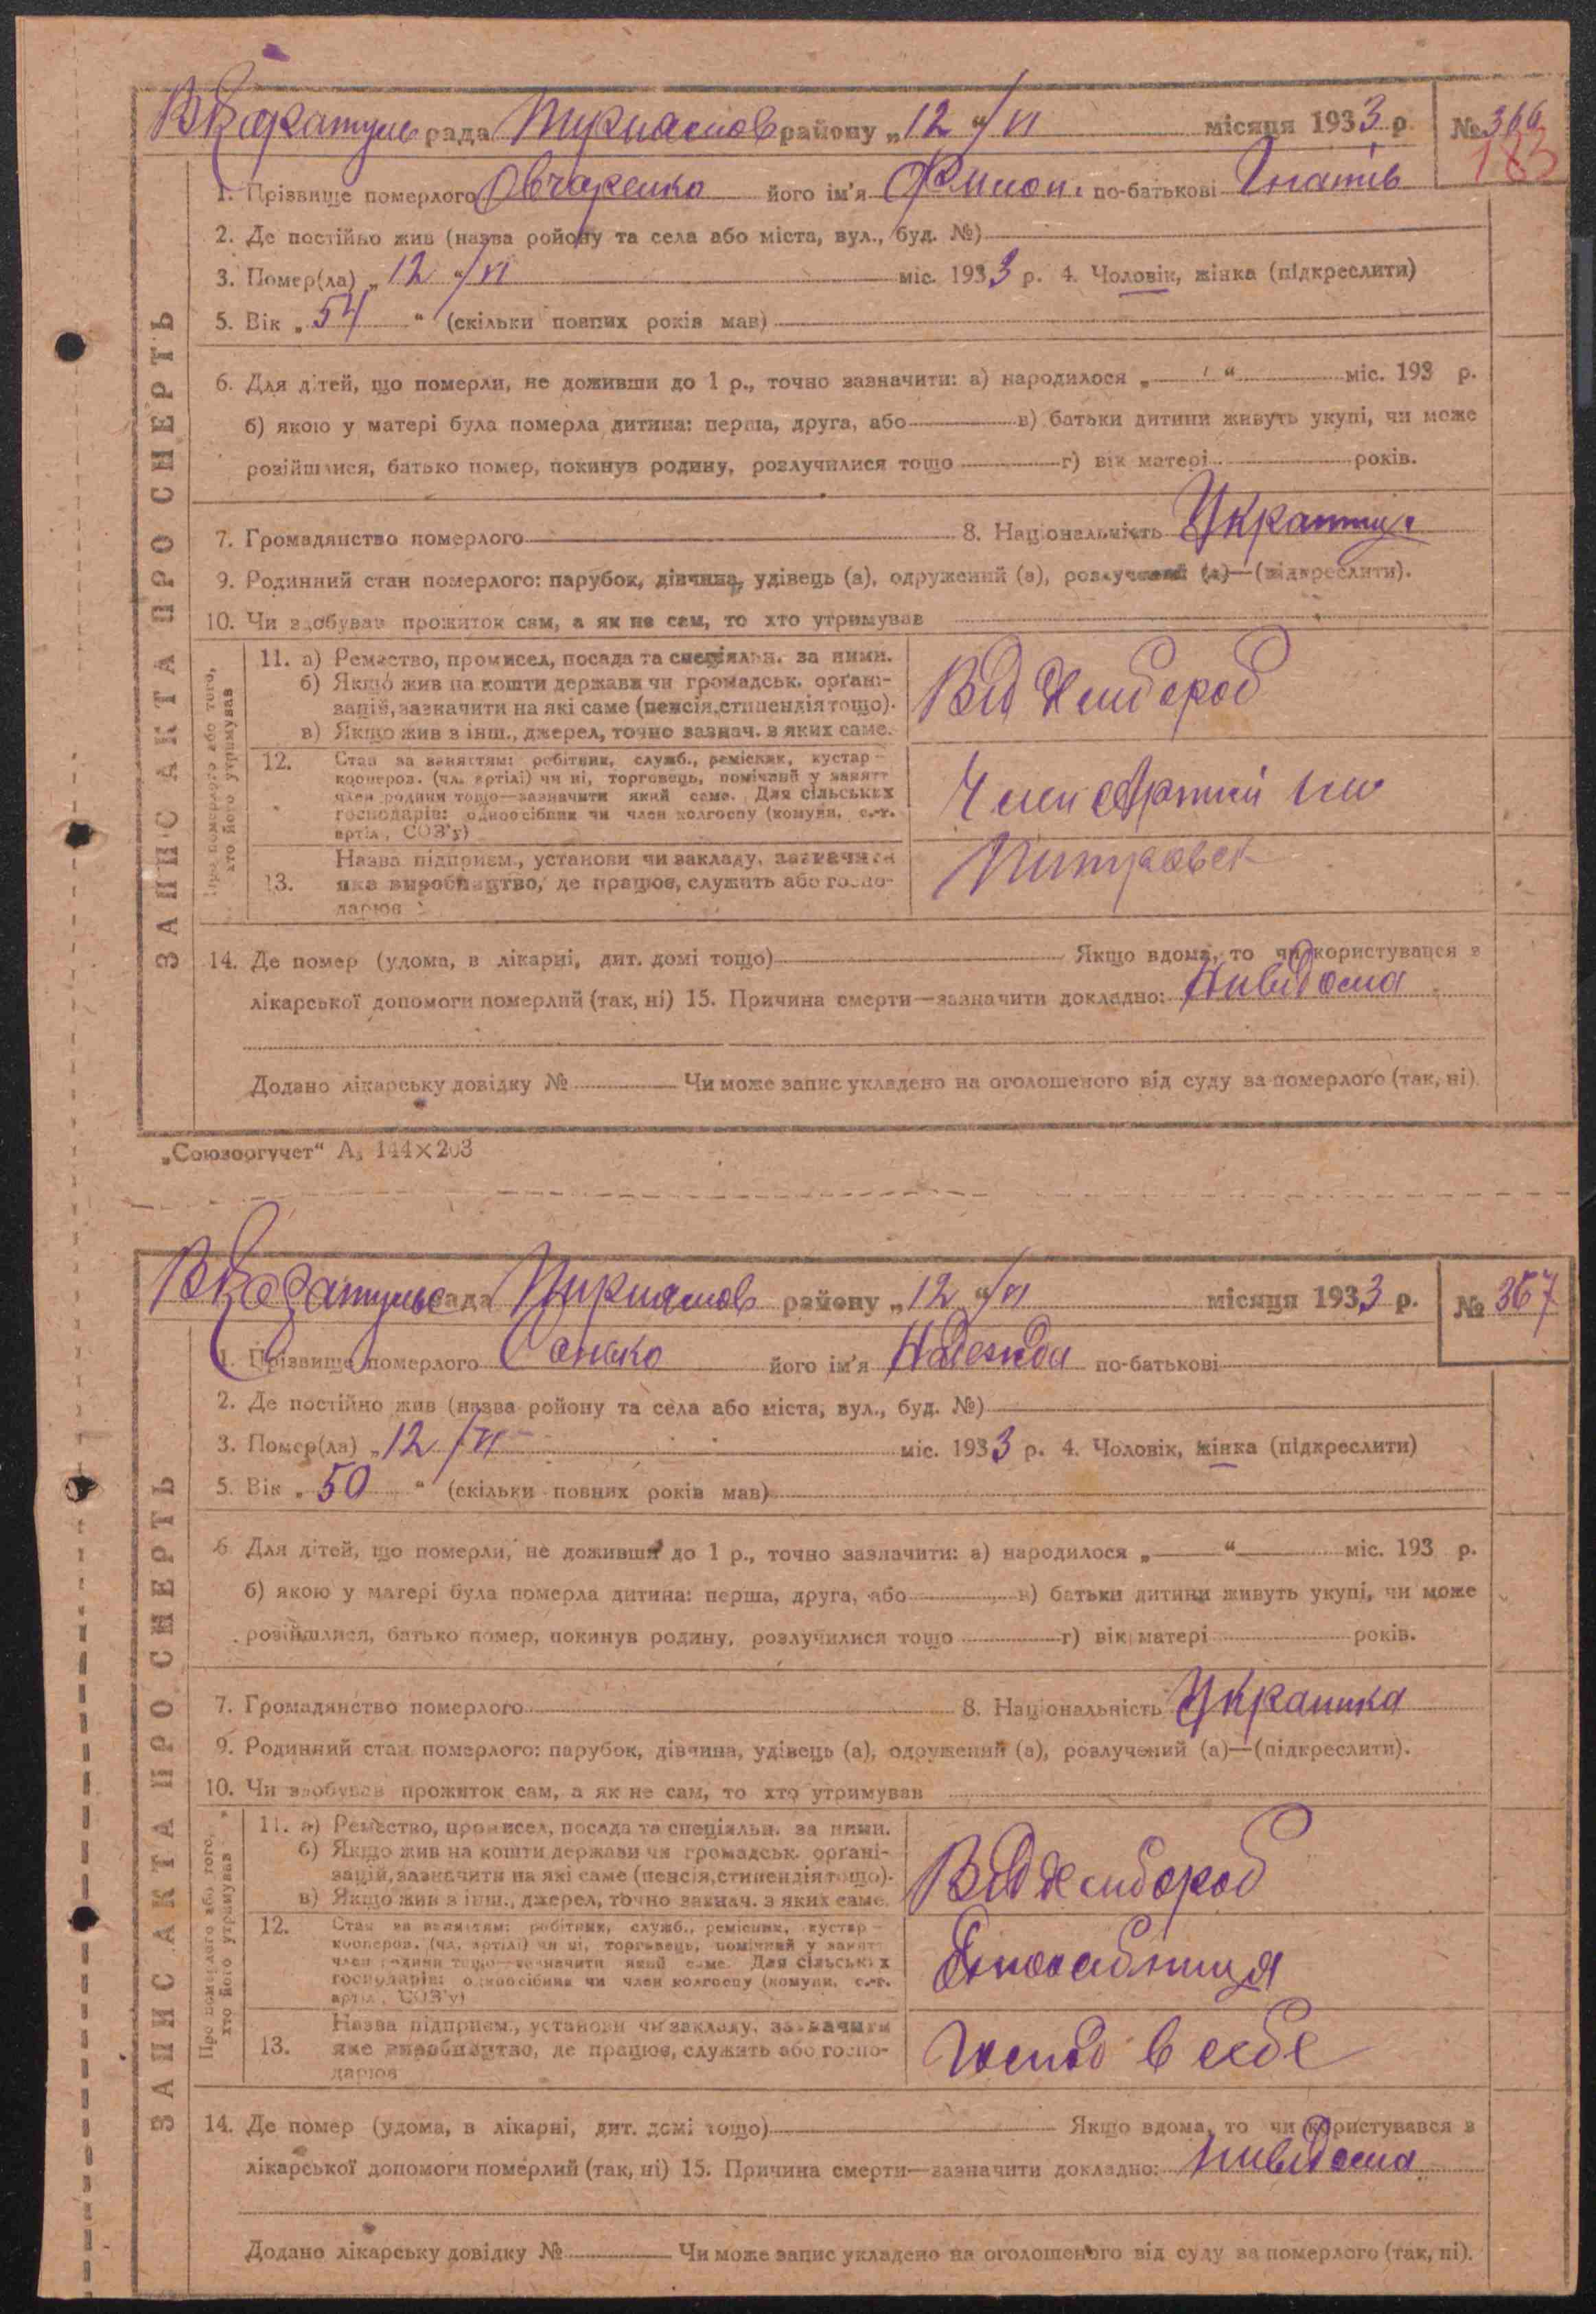 ЗАПИС АКТА ПРО СМЕРТЬ
ВКаратуль рада району „12“/VI місяця 1933 р. № 366
183
1. Прізвище померлого Овчаренко його ім'я Филон. по-батькові Ігнатів
2. Де постійно жив (назва ройону та села або міста, вул., буд. №)
3. Помер(ла) „12“/VI міс. 1933 р. 4. Чоловік, жінка (підкреслити)
5. Вік „54“ (скільки повних років мав)
6. Для дітей, що померли, не доживши до 1 р., точно зазначити: а) народилося „ “ міс. 193 р.
б) якою у матері була померла дитина: перша, друга, або в) батьки дитини живуть укупі, чи може
розійшлися, батько помер, покинув родину, розлучилися тощо г) вік матері років.
7. Громадянство померлого 8. Національність
9. Родинний стан померлого: парубок, дівчина, удівець (а), одружений (а), розлучений (а)—(підкреслити).
10. Чи здобував прожиток сам, а як не сам, то хто утримував
Про померлого або того, хто його утримував
11. а) Ремество, промисел, посада та спеціяльн. за ними.
б) Якщо жив на кошти держави чи громадськ. органі-
зацій, зазначити на які саме (пенсія, стипендія тощо).
в) Якщо жив з інш., джерел, точно зазнач. з яких саме.
Від
12. Стан за заняттям: робітник, служб., ремісник, кустар—
кооперов. (чл. артілі) чи ні, торговець, помічний у занятт
член родини тощо—зазначити який саме. Для сільських
господарів: одноосібник чи член колгоспу (комуни, с.-г.
артіл., СОЗ'у)
Член Артілі
13. Назва підприєм., установи чи закладу, зазначити
яке виробництво, де працює, служить або госпо-
дарює
14. Де помер (удома, в лікарні, дит. домі тощо) Якщо вдома, то чи користувався з
лікарської допомоги померлий (так, ні) 15. Причина смерти—зазначити докладно: Нивідома
Додано лікарську довідку № Чи може запис укладено на оголошеного від суду за померлого (так, ні).
„Союзоргучет“ А₅ 144×203
ЗАПИС АКТА ПРО СМЕРТЬ
рада району „12“/VI місяця 1933 р. № 367
1. Прізвище померлого Сонько його ім'я Надежда по-батькові
2. Де постійно жив (назва ройону та села або міста, вул., буд. №)
3. Помер(ла) „12“/VI міс. 1933 р. 4. Чоловік, жінка (підкреслити)
5. Вік „50“ (скільки повних років мав)
6 Для дітей, що померли, не доживши до 1 р., точно зазначити: а) народилося „ “ міс. 193 р.
б) якою у матері була померла дитина: перша, друга, або в) батьки дитини живуть укупі, чи може
розійшлися, батько помер, покинув родину, розлучилися тощо г) вік матері років.
7. Громадянство померлого 8. Національність Украинка
9. Родинний стан померлого: парубок, дівчина, удівець (а), одружений (а), розлучений (а)—(підкреслити).
10. Чи здобував прожиток сам, а як не сам, то хто утримував
Про померлого або того, хто його утримував
11. а) Ремество, промисел, посада та спеціяльн. за ними.
б) Якщо жив на кошти держави чи громадськ. органі-
зацій, зазначити на які саме (пенсія, стипендія тощо).
в) Якщо жив з інш., джерел, точно зазнач. з яких саме.
Від
12. Стан за заняттям: робітник, служб., ремісник, кустар—
кооперов. (чл. артілі) чи ні, торговець, помічний у занятт
член родини тощо—зазначити який саме. Для сільських
господарів: одноосібник чи член колгоспу (комуни, с.-г.
артіл., СОЗ'у)
13. Назва підприєм., установи чи закладу, зазначити
яке виробництво, де працює, служить або госпо-
дарює
Господ в себе
14. Де помер (удома, в лікарні, дит. домі тощо) Якщо вдома, то чи користувався з
лікарської допомоги померлий (так, ні) 15. Причина смерти—зазначити докладно: нивідома
Додано лікарську довідку № Чи може запис укладено на оголошеного від суду за померлого (так, ні).